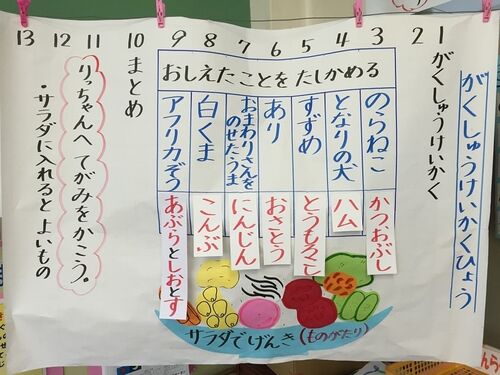 がくしゅうけいかくひょう
1 2 3 4 5 6 7 8 9 10 11 12 13
がくしゅうけいかく
おしえたことを たしかめる
のらねこ
かつおぶし
となりの犬
ハム
すずめ
とうもろこし
あり
おさとう
おまわりさんを
のせたうま
にんじん
白くま
こんぶ
アフリカぞう
あぶらとしおとす
まとめ
りっちゃんへ てがみをかこう。
・サラダに入れると よいもの
サラダでげんき(ものがたり)